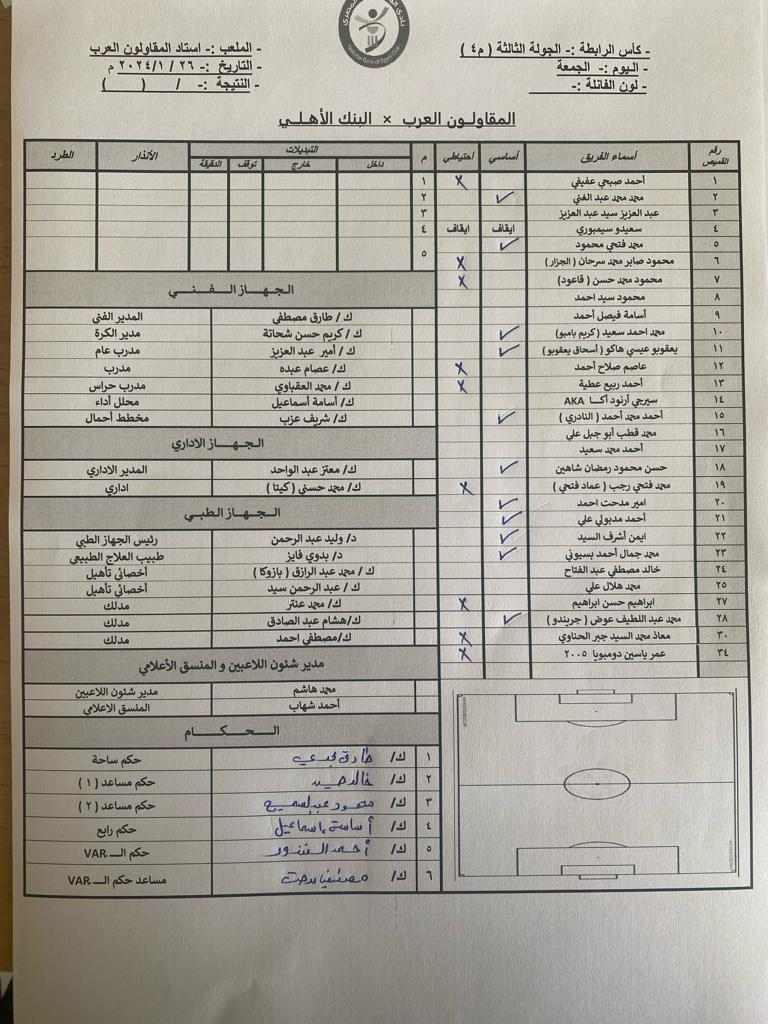 - كأس الرابطة :- الجولة الثالثة ( م٤ )
- اليوم :- الجمعة
- لون الفانلة :-
- الملعب :- استاد المقاولون العرب
- التاريخ :- ٢٦ / ١/ ٢٠٢٤ م
- النتيجة :- / ( )
المقاولـون العرب × البنك الأهلـي
رقم القميص أسماء الفريق أساسي أحتياطي م التبديلات الأنذار الطرد
داخل خارج توقف الدقيقة
١ أحمد صبحي عفيفي X
٢ محمد محمد عبد الغني ✓
٣ عبد العزيز سيد عبد العزيز
٤ سعيدو سيمبوري ايقاف ايقاف
٥ محمد فتحي محمود ✓
٦ محمود صابر محمد سرحان ( الجزار ) X
٧ محمود محمد حسن ( قاعود ) X
٨ محمود سيد احمد
٩ أسامة فيصل أحمد
١٠ محمد احمد سعيد ( كريم بامبو ) ✓
١١ يعقوبو عيسي هاكو ( أسحاق يعقوبو ) ✓
١٢ عاصم صلاح أحمد X
١٣ أحمد ربيع عطية X
١٤ سيرجي أرنود أكـا AKA
١٥ أحمد محمد أحمد ( النادري ) ✓
١٦ محمد قطب أبو جبل علي
١٧ أحمد محمد سعيد
١٨ حسن محمود رمضان شاهين ✓
١٩ محمد فتحي رجب ( عماد فتحي ) X
٢٠ امير مدحت احمد ✓
٢١ أحمد مدبولي علي ✓
٢٢ ايمن أشرف السيد ✓
٢٣ محمد جمال أحمد بسيوني ✓
٢٤ خالد مصطفي عبد الفتاح
٢٥ محمد هلال علي
٢٧ ابراهيم حسن ابراهيم X
٢٨ محمد عبد اللطيف عوض ( جريندو ) ✓
٣٠ معاذ محمد السيد جبر الحناوي X
٣٤ عمر ياسين دومبويا ٢٠٠٥ X
١
٢
٣
٤
٥
الجـهـاز الـفـنـي
ك / طارق مصطفى المدير الفنى
ك / كريم حسن شحاتة مدير الكرة
ك / أمير عبد العزيز مدرب عام
ك/ عصام عبده مدرب
ك / محمد العقباوي مدرب حراس
ك/ أسامة أسماعيل محلل أداء
ك/ شريف عزب مخطط أحمال
الـجـهـاز الاداري
ك/ معتز عبد الواحد المدير الاداري
ك/ محمد حسني ( كيتا ) اداري
الـجـهـاز الطبـي
د/ وليد عبد الرحمن رئيس الجهاز الطبي
د/ بدوي فايز طبيب العلاج الطبيعى
ك / محمد عبد الرازق ( بازوكا ) أخصائي تأهيل
ك / عبد الرحمن سيد أخصائي تأهيل
ك/ محمد عنتر مدلك
ك/هشام عبد الصادق مدلك
ك/مصطفي احمد مدلك
مدير شئون اللاعبين و المنسق الأعلامي
محمد هاشم مدير شئون اللاعبين
أحمد شهاب المنسق الاعلامي
الـحـكـام
١ ك/ طارق مجدي حكم ساحة
٢ ك/ خالد حسين حكم مساعد ( ١ )
٣ ك/ محمود عبد السميع حكم مساعد ( ٢ )
٤ ك/ أسامة إسماعيل حكم رابع
٥ ك/ أحمد الغندور حكم الـــ VAR
٦ ك/ مصطفي مدحت مساعد حكم الـــ VAR